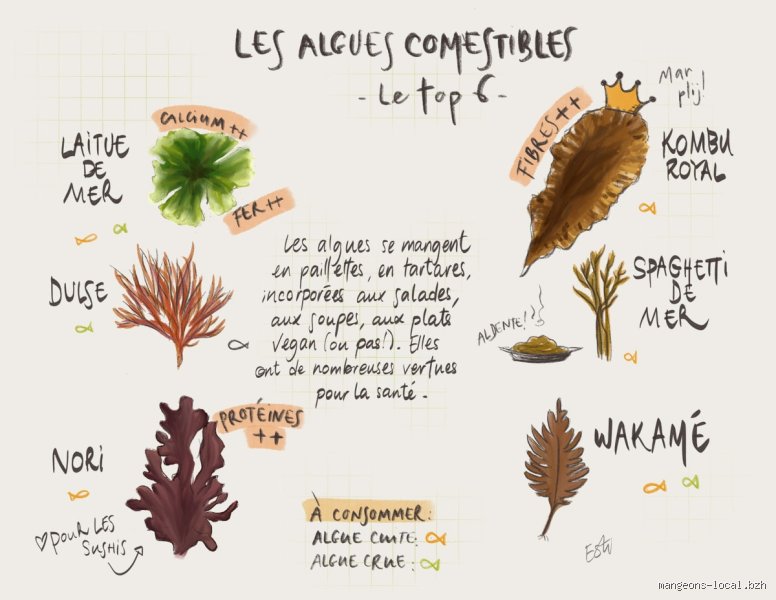 LES ALGUES COMESTIBLES
- Le top 6 -
CALCIUM ++
LAITUE
DE
MER
FER ++
FIBRES ++
Mar
plij!
KOMBU
ROYAL
DULSE
Les algues se mangent
en paillettes, en tartares,
incorporées aux salades,
aux soupes, aux plats
vegan (ou pas!). Elles
ont de nombreuses vertues
pour la santé -
ALDENTE!
SPAGHETTI
DE
MER
NORI
PROTÉINES
++
POUR LES
SUSHIS
WAKAMÉ
À CONSOMMER:
ALGUE CUITE:
ALGUE CRUE:
mangeons-local.bzh